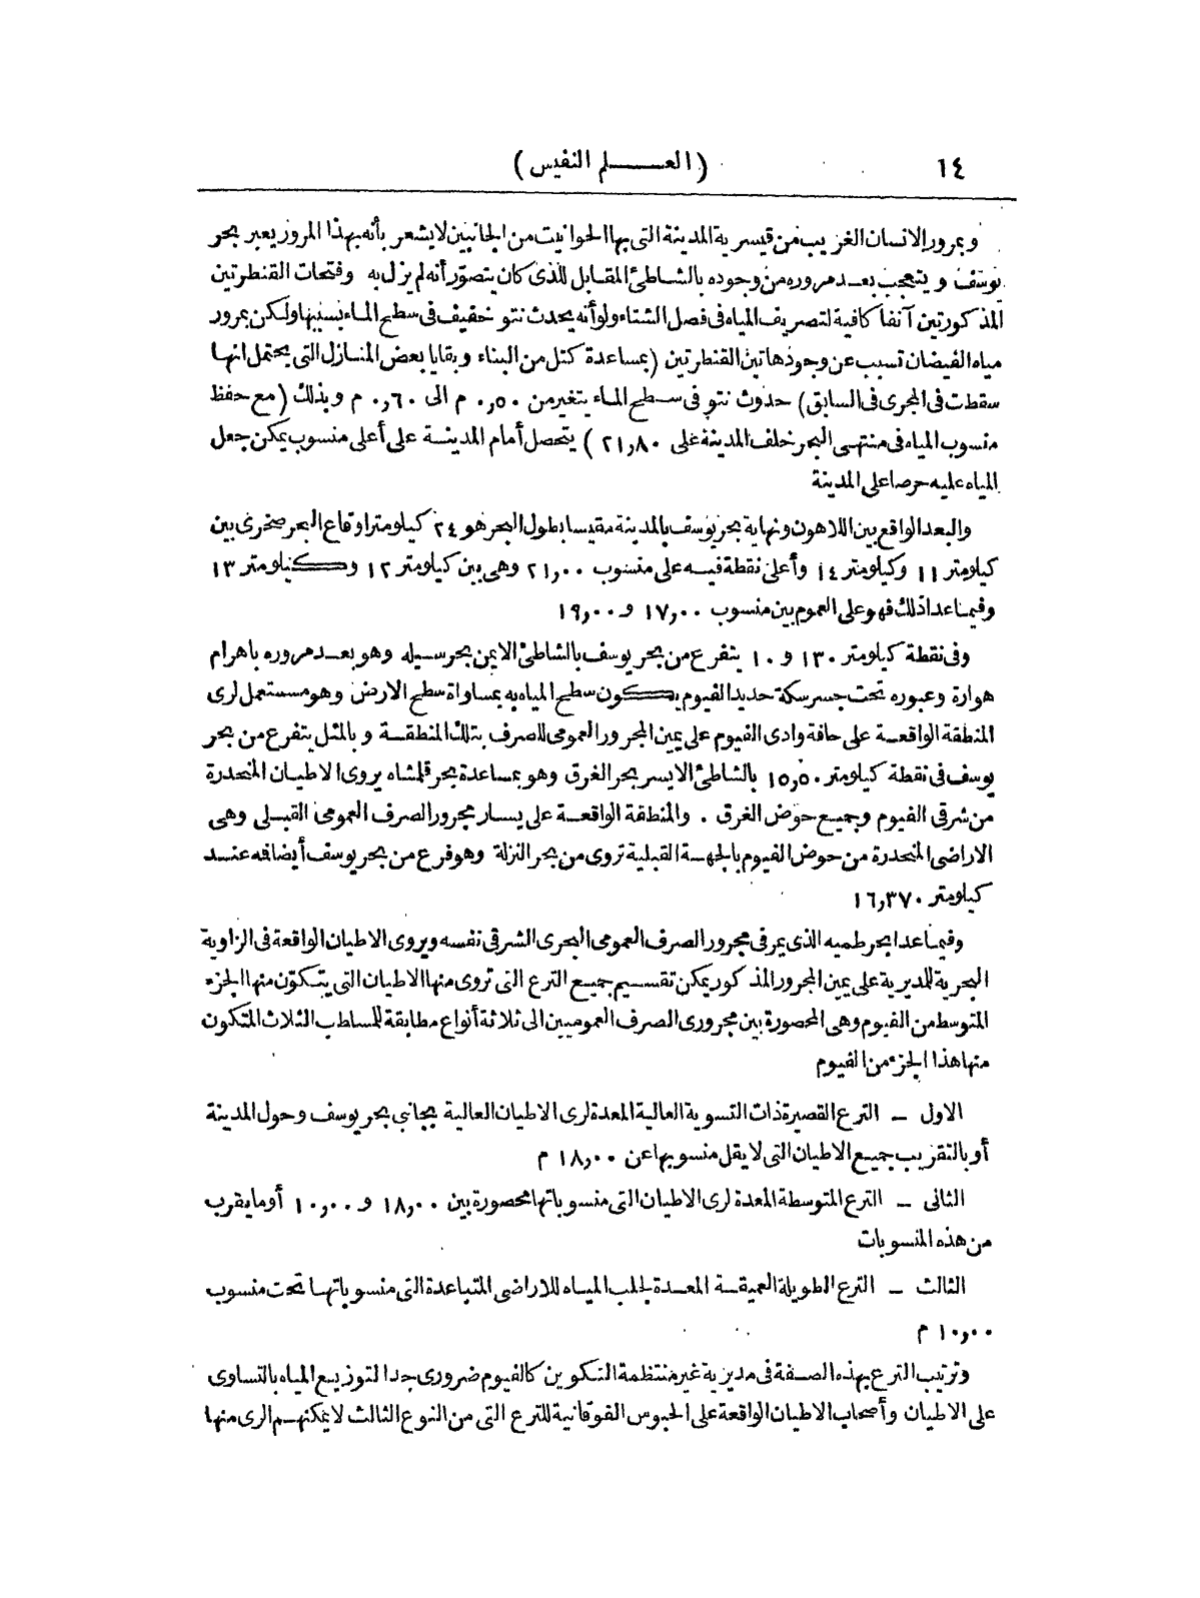 ١٤
(العــــلم النفيس)
وبمرور الانسان الغريب من قيسرية المدينة التى بها الحوانيت من الجانبين لا يشعر بأنه بهذا المرور يعبر بحر
يوسف ويتعجب بعد مروره من وجوده بالشاطئ المقابل للذى كان يتصوّر أنه لم يزل به وفتحات القنطرتين
المذكورتين آنفا كافية لتصريف المياه فى فصل الشتاء ولو أنه يحدث نتو خفيف فى سطح الماء بسببها ولكن بمرور
مياه الفيضان تسبب عن وجود هاتين القنطرتين (بمساعدة كتل من البناء وبقايا بعض المنازل التى يحتمل انها
سقطت فى المجرى فى السابق) حدوث نتو فى سطح الماء يتغير من ٠,٥٠ م الى ٠,٦٠ م وبذلك (مع حفظ
منسوب المياه فى منتهى البحر خلف المدينة على ٢١,٨٠) يتحصل أمام المدينة على أعلى منسوب يمكن جعل
المياه عليه حرصا على المدينة
والبعد الواقع بين اللاهون ونهاية بحر يوسف بالمدينة مقيسا بطول البحر هو ٢٤ كيلومترا وقاع البحر صخرى بين
كيلومتر ١١ وكيلومتر ١٤ وأعلى نقطة فيه على منسوب ٢١,٠٠ وهى بين كيلومتر ١٢ وكيلومتر ١٣
وفيما عدا ذلك فهو على العموم بين منسوب ١٧,٠٠ و ١٩,٠٠
وفى نقطة كيلومتر ١٣٠ و ١٠ يتفرع من بحر يوسف بالشاطئ الايمن بحر سيله وهو بعد مروره باهرام
هوارة وعبوره تحت جسر سكة حديد الفيوم يكون سطح المياه به بمساواة سطح الارض وهو مستعمل لرى
المنطقة الواقعة على حافة وادى الفيوم على يمين المجرور العمومى للصرف بتلك المنطقة وبالمثل يتفرع من بحر
يوسف فى نقطة كيلومتر ١٥,٥٠ بالشاطئ الايسر بحر الغرق وهو بمساعدة بحر قلمشاه يروى الاطيان المنحدرة
من شرقى الفيوم وجميع حوض الغرق . والمنطقة الواقعة على يسار مجرور الصرف العمومى القبلى وهى
الاراضى المنحدرة من حوض الفيوم بالجهة القبلية تروى من بحر النزلة وهو فرع من بحر يوسف أيضا فه عند
كيلومتر ١٦,٣٧٠
وفيما عدا بحر طميه الذى يمر فى مجرور الصرف العمومى البحرى الشرقى نفسه ويروى الاطيان الواقعة فى الزاوية
البحرية للمديرية على يمين المجرور المذكور يمكن تقسيم جميع الترع التى تروى منها الاطيان التى يتكوّن منها الجزء
المتوسط من الفيوم وهى المحصورة بين مجرورى الصرف العموميين الى ثلاثة أنواع مطابقة للمساطب الثلاث المتكون
منها هذا الجزء من الفيوم
الاول ــ الترع القصيرة ذات التسوية العالية المعدة لرى الاطيان العالية بجانبى بحر يوسف وحول المدينة
أو بالتقريب جميع الاطيان التى لا يقل منسوبها عن ١٨,٠٠ م
الثانى ــ الترع المتوسطة المعدة لرى الاطيان التى منسوباتها محصورة بين ١٨,٠٠ و ١٠,٠٠ أو ما يقرب
من هذه المنسوبات
الثالث ــ الترع الطويلة العميقة المعدة لجلب المياه للاراضى المتباعدة التى منسوباتها تحت منسوب
١٠,٠٠ م
وترتيب الترع بهذه الصفة فى مديرية غير منتظمة التكوين كالفيوم ضرورى جدا لتوزيع المياه بالتساوى
على الاطيان وأصحاب الاطيان الواقعة على الحبوس الفوقانية للترع التى من النوع الثالث لا يمكنهم الرى منها